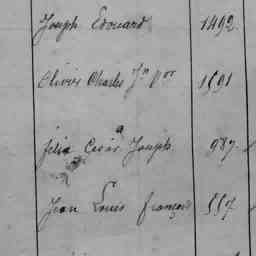 Joseph Edouard 1492.
Olivier Charles Jn
félix César Joseph 987
Jean Louis françois 557